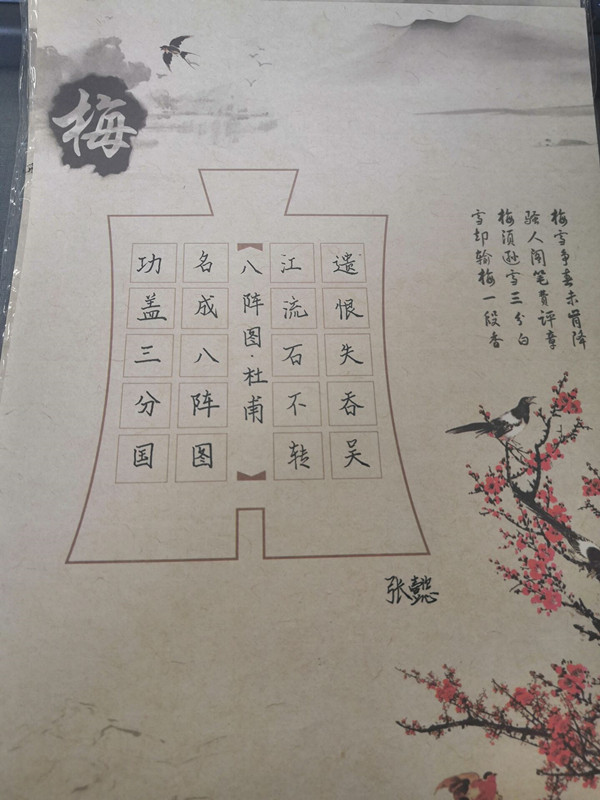 梅
功盖三分国
名成八阵图
八阵图·杜甫
江流石不转
遗恨失吞吴
张懿
梅雪争春未肯降
骚人阁笔费评章
梅须逊雪三分白
雪却输梅一段香